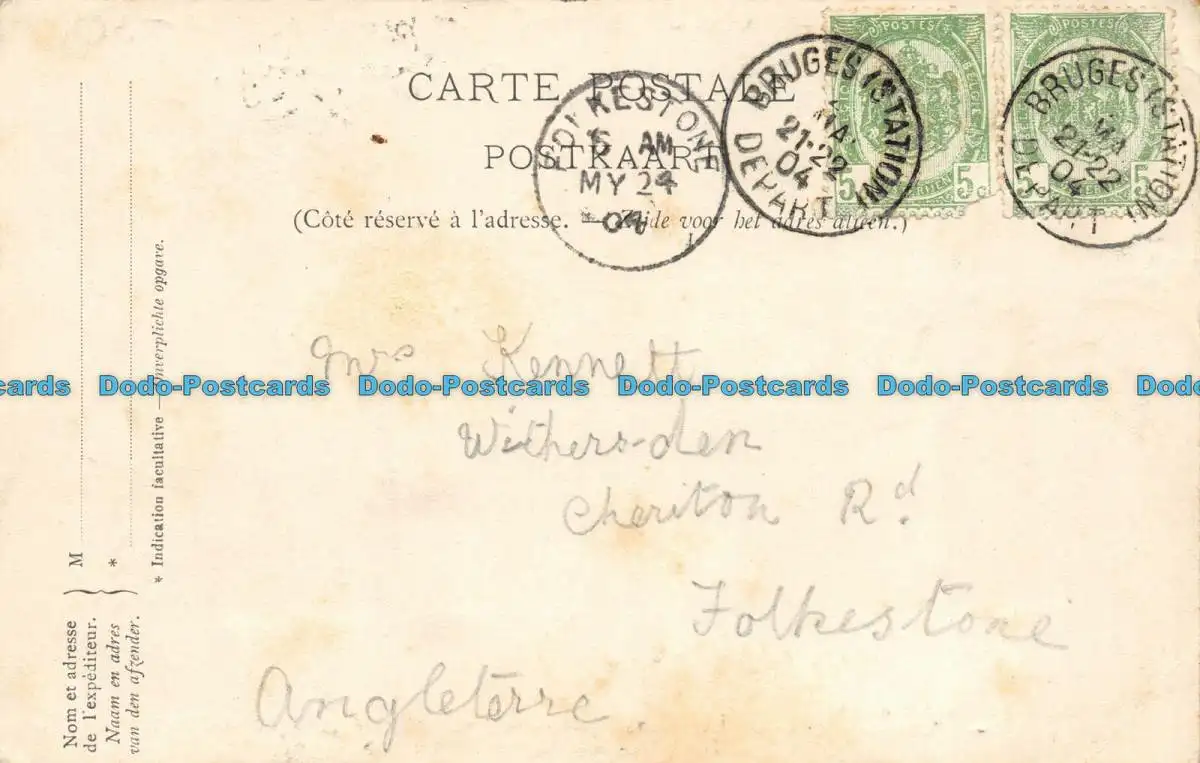 CARTE POSTALE
POSTKAART
(Côté réservé à l'adresse. — Zijde voor het adres alleen.)
POSTES
5 c CENTIMES
POSTES
5 c CENTIMES
BRUGES (STATION)
MA
21-22
04
DEPART
BRUGES (STATION)
MA
21-22
04
DEPART
FOLKESTONE
5 AM
MY 24
04
Mrs Kennett
Dodo-Postcards Dodo-Postcards Dodo-Postcards Dodo-Postcards
Withersden
Cheriton Rd.
Folkestone
Angleterre.
Nom et adresse
de l'expéditeur.
Naam en adres
van den afzender.
M
*
* Indication facultative — Onverplichte opgave.